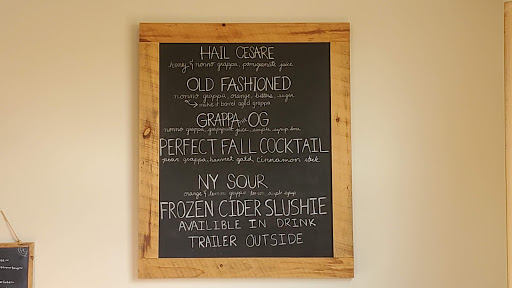 HAIL CESARE
honey & nonno grappa, pomegranate juice
OLD FASHIONED
nonno grappa, orange, bitters, sugar
make it barrel aged grappa
GRAPPA OG
nonno grappa, grapefruit juice, simple syrup, lime
PERFECT FALL COCKTAIL
pear grappa, caramel gold, cinnamon stick
NY SOUR
orange & lemon grappa, lemon, simple syrup
FROZEN CIDER SLUSHIE
AVAILIBLE IN DRINK
TRAILER OUTSIDE